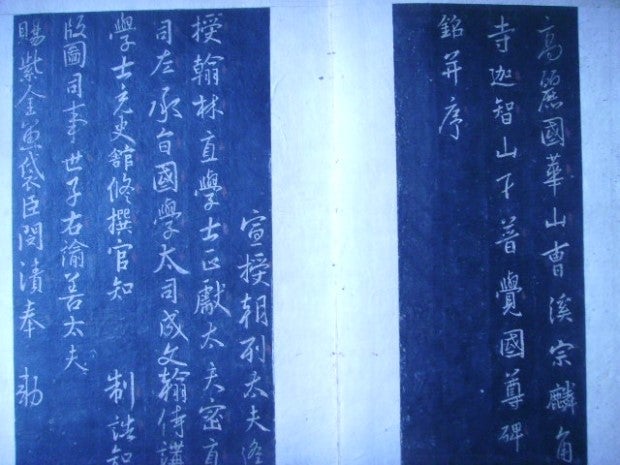 高麗國華山曹溪宗麟角
寺迦智山下普覺國尊碑
銘并序
宣授朝列太夫遙
授翰林直學士正獻太夫密直
司左承旨國學太司成文翰侍講
學士充史館脩撰官知 制誥知
版圖司事世子右諭善太夫
賜紫金魚袋臣閔漬奉 勅